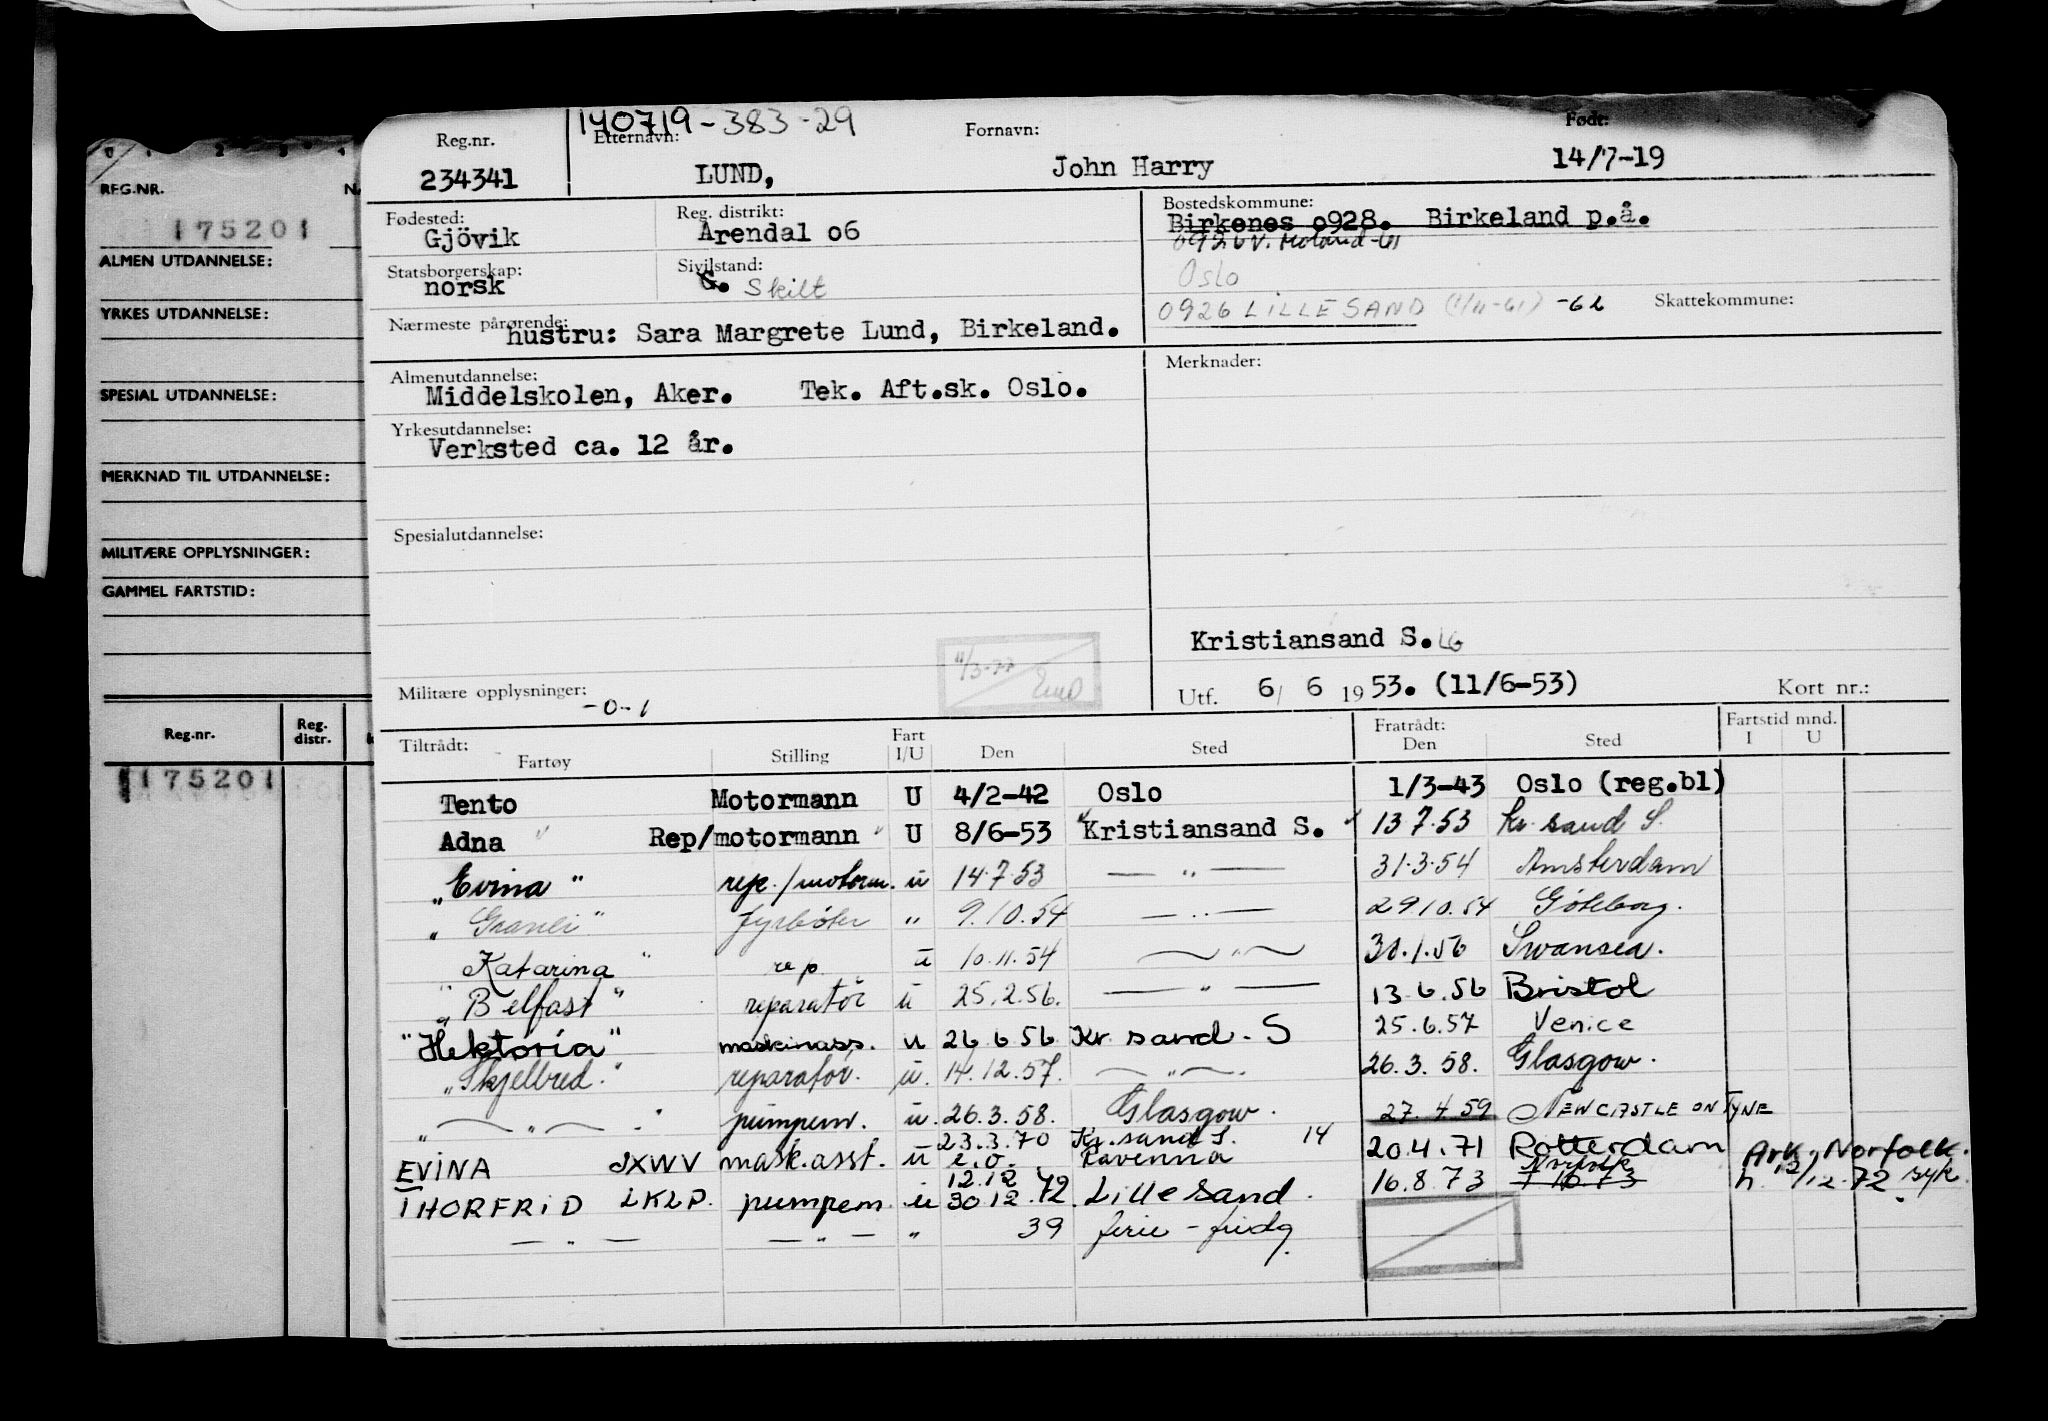 140719-383-29
Reg.nr. Etternavn: Fornavn: Født:
234341 LUND, John Harry 14/7-19
Fødested: Reg. distrikt: Bostedskommune:
Gjövik Arendal o6 Birkenes o928. Birkeland p.å.
0926 V. Moland-
Statsborgerskap: Sivilstand: Oslo
norsk G. Skilt
0926 LILLESAND (1/11-61) -62 Skattekommune:
Nærmeste pårørende:
hustru: Sara Margrete Lund, Birkeland.
Almenutdannelse: Merknader:
Middelskolen, Aker. Tek. Aft.sk. Oslo.
Yrkesutdannelse:
Verksted ca. 12 år.
Spesialutdannelse:
Kristiansand S. LG
11/3-77
Militære opplysninger: -0-1
Utf. 6/ 6 1953. (11/6-53) Kort nr.:
Tiltrådt: Fart Fratrådt: Fartstid mnd.
Fartøy Stilling I/U Den Sted Den Sted I U
Tento Motormann U 4/2-42 Oslo 1/3-43 Oslo (reg.bl)
Adna " Rep/motormann " U 8/6-53 Kristiansand S. 13 7.53 Kr. sand S.
"Evina" rep./motorm. u 14.7.53 — " — 31.3.54 Amsterdam
"Granli" fyrböter " 9.10.54 — " — 29 10.54 Göteborg.
"Katarina" rep u 10.11.54 — " — 30.1.56 Swansea.
"Belfast" reparatör u 25.2.56. — " — 13.6.56 Bristol
"Hektoria" maskinass. u 26 6 56 Kr. sand. S 25.6.57 Venice
"Skjelbred." reparatör. u. 14.12.57. — " —. 26.3.58. Glasgow.
" — " — " pumpem. u. 26.3.58. Glasgow. 27.4 59 NEWCASTLE ON TYNE
23.3.70 Kr. sand S. 14
EVINA JXWV mask.asst. u e.o. Ravenna 20.4.71 Rotterdam Ark. Norfolk.
12.12 72 Norfolk
THORFRID LKLP. pumpem. u 30.12.72. Lillesand. 16.8.73 h. 12/12.72 syk.
— " — — " — " 39 ferie - fridg.
REG.NR. NA
175201
ALMEN UTDANNELSE:
YRKES UTDANNELSE:
SPESIAL UTDANNELSE:
MERKNAD TIL UTDANNELSE:
MILITÆRE OPPLYSNINGER:
GAMMEL FARTSTID:
Reg.nr. Reg. distr.
175201